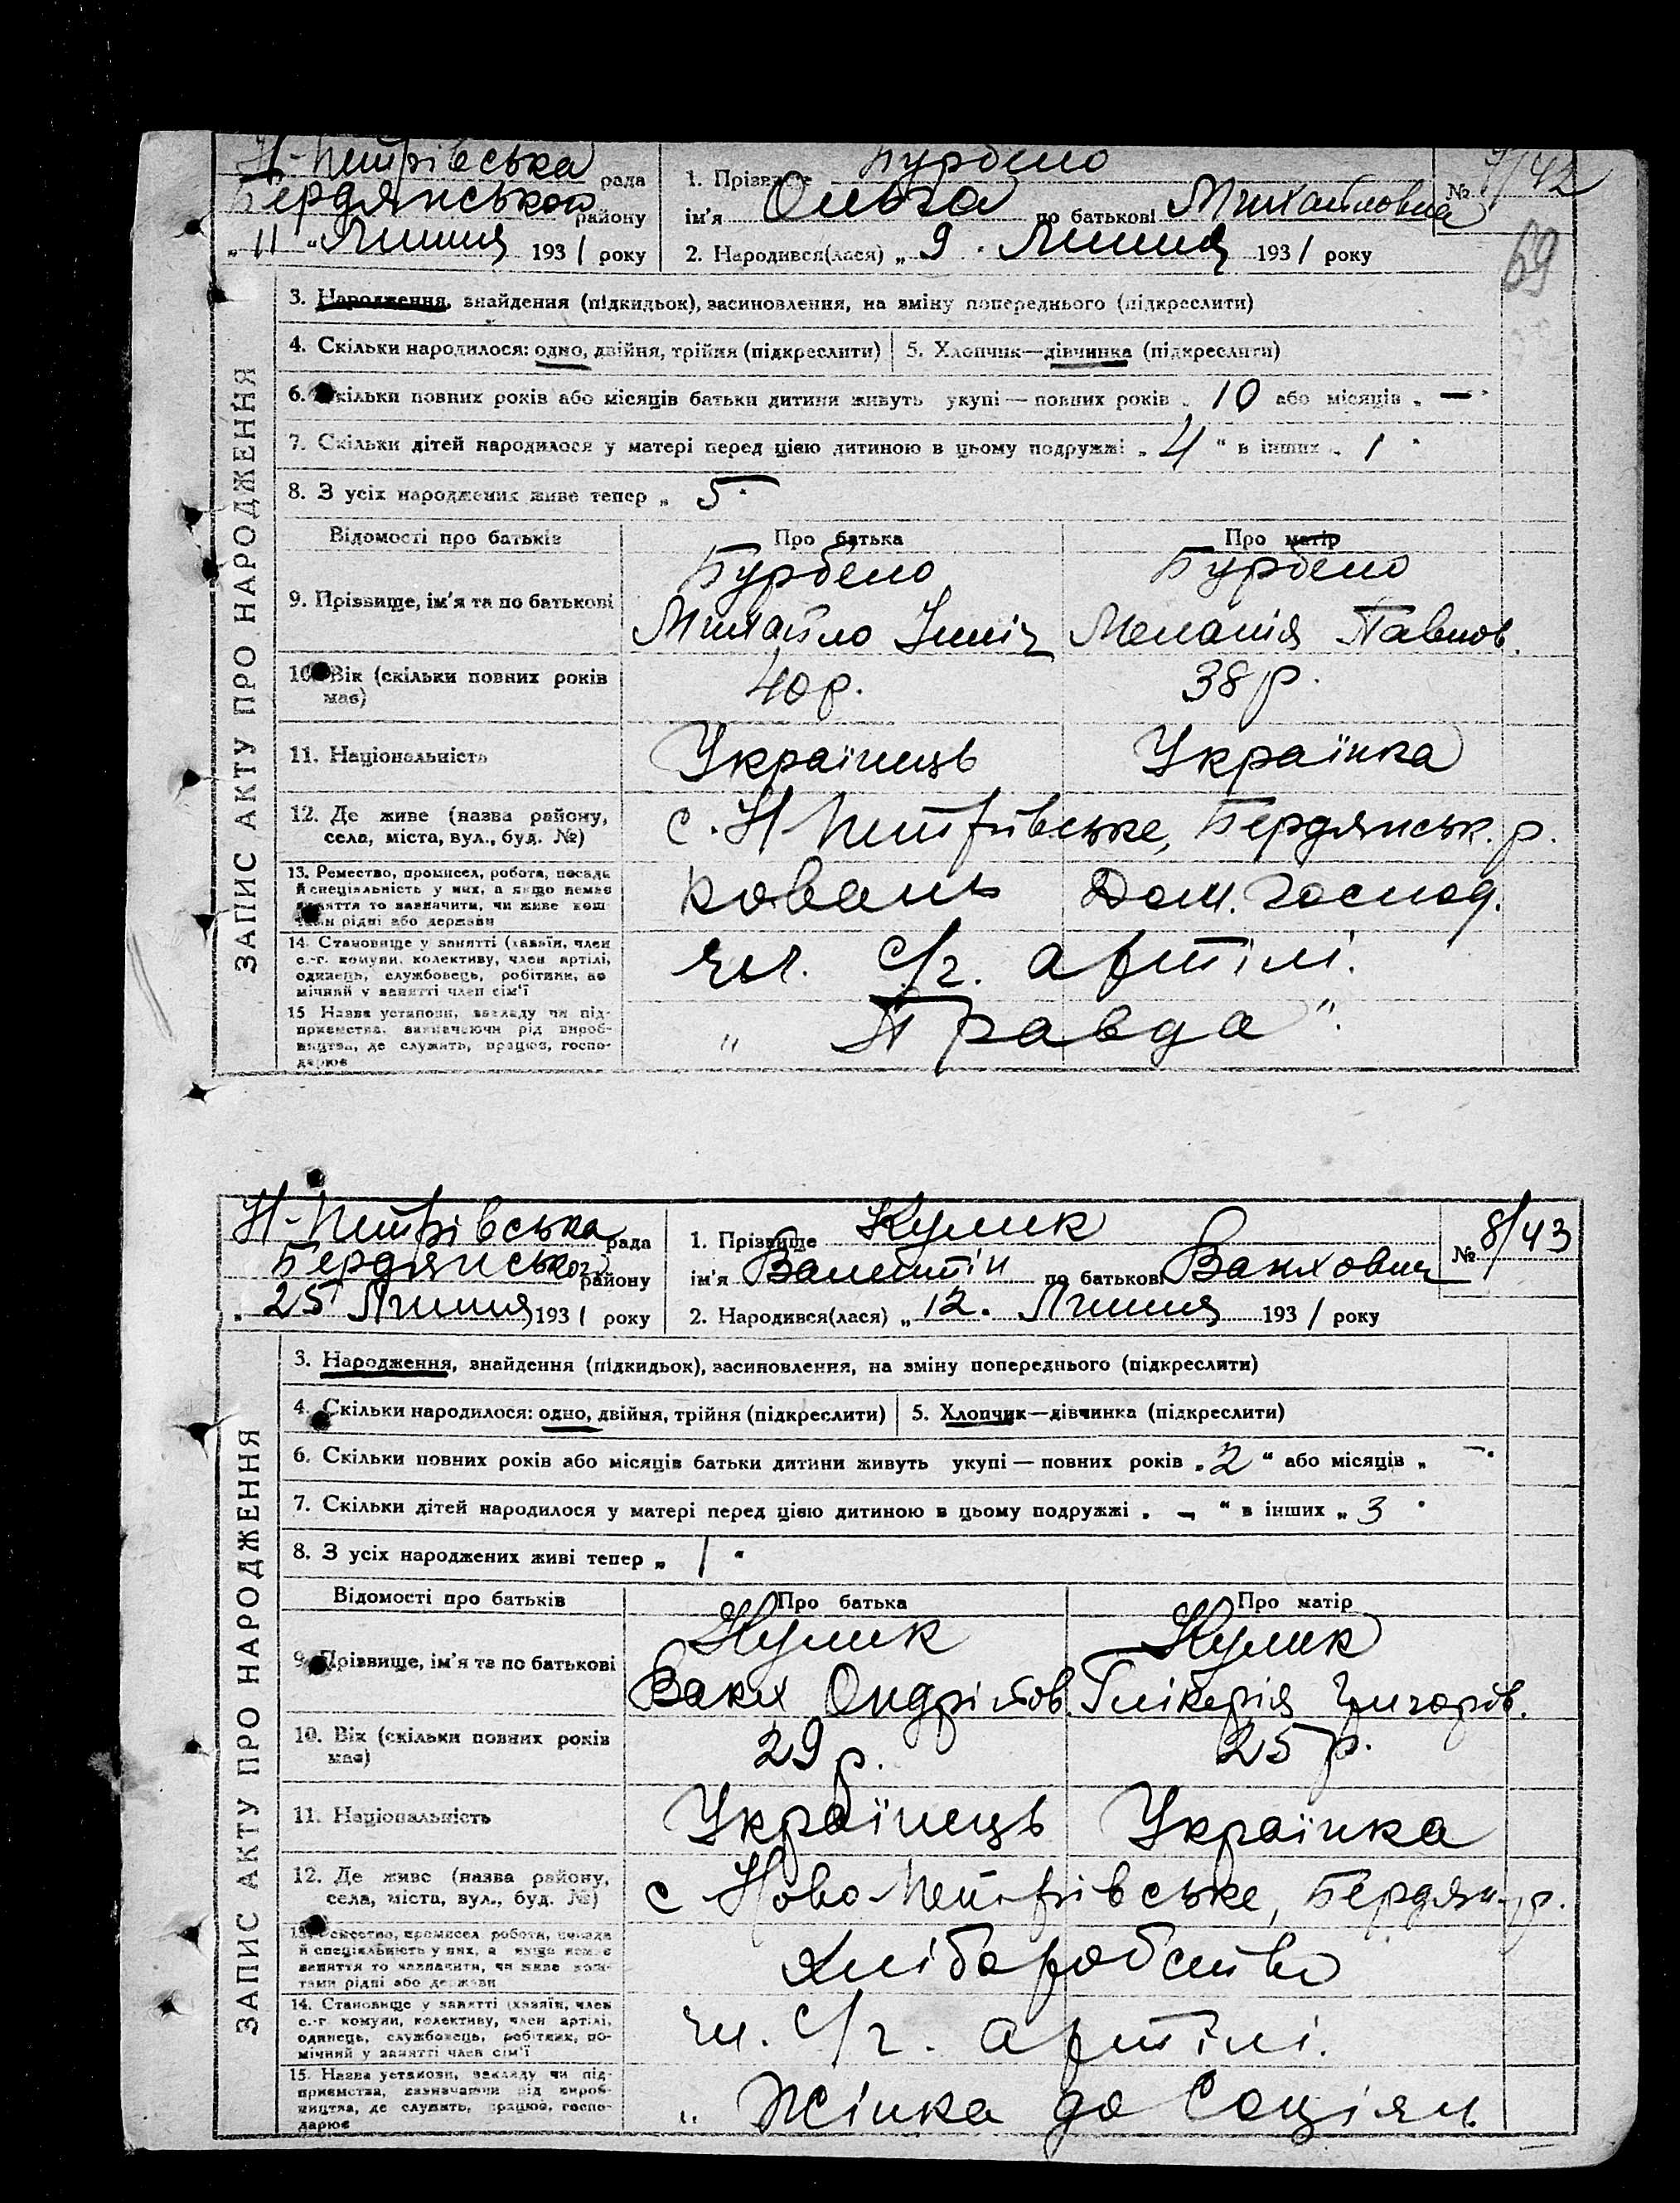 Н-Петрівська рада
Бердянського району
„ 11 “ Липня 1931 року
1. Прізвище Бурдело
ім'я Ольга по батькові Михайловна
№ 9/42
69
2. Народився(лася) „ 9 . Липня 1931 року
ЗАПИС АКТУ ПРО НАРОДЖЕННЯ
3. Народження, знайдення (підкидьок), засиновлення, на зміну попереднього (підкреслити)
4. Скільки народилося: одно, двійня, трійня (підкреслити) 5. Хлопчик—дівчинка (підкреслити)
6. Скільки повних років або місяців батьки дитини живуть укупі — повних років „ 10 або місяців „ —
7. Скільки дітей народилося у матері перед цією дитиною в цьому подружжі „ 4 “ в інших „ 1 “
8. З усіх народжених живе тепер „ 5 “
Відомості про батьків Про батька Про матір
9. Прізвище, ім'я та по батькові Бурдело Бурдело
Михайло Ілліч Меланія Павлов.
10. Вік (скільки повних років має) 40 р. 38 р.
11. Національність Українець Українка
12. Де живе (назва району, села, міста, вул., буд. №) с. Н-Петрівське, Бердянськ. р.
13. Ремество, промисел, робота, посада й спеціальність у них, а якщо немає заняття то зазначити, чи живе коштами рідні або держави Коваль Дом. господ.
14. Становище у занятті (хазяїн, член с.-г. комуни, колективу, член артілі, одинець, службовець, робітник, помічний у занятті член сім'ї чл. с/г. артілі.
15 Назва установи, закладу чи підприємства, зазначаючи рід виробництва, де служить, працює, господарює „ Правда “.
Н-Петрівська рада
Бердянського району
„ 25 Липня 1931 року
1. Прізвище Кулик
ім'я Валентін по батькові Вакхович
№ 8/43
2. Народився(лася) „ 12. Липня 1931 року
ЗАПИС АКТУ ПРО НАРОДЖЕННЯ
3. Народження, знайдення (підкидьок), засиновлення, на зміну попереднього (підкреслити)
4. Скільки народилося: одно, двійня, трійня (підкреслити) 5. Хлопчик—дівчинка (підкреслити)
6. Скільки повних років або місяців батьки дитини живуть укупі — повних років „ 2 “ або місяців „ —
7. Скільки дітей народилося у матері перед цією дитиною в цьому подружжі „ — “ в інших „ 3 “
8. З усіх народжених живі тепер „ 1 “
Відомості про батьків Про батька Про матір
9. Прізвище, ім'я та по батькові Кулик Кулик
Вакх Ондріїов. Глікерія Григорів.
10. Вік (скільки повних років має) 29 р. 25 р.
11. Національність Українець Українка
12. Де живе (назва району, села, міста, вул., буд. №) с Ново-Петрівське, Бердян. р.
13. Ремество, промисел, робота, посада й спеціальність у них, а якщо немає заняття то зазначити, чи живе коштами рідні або держави Хліборобство
14. Становище у занятті (хазяїн, член с.-г. комуни, колективу, член артілі, одинець, службовець, робітник, помічний у занятті член сім'ї чл. с/г. артілі.
15. Назва установи, закладу чи підприємства, зазначаючи рід виробництва, де служить, працює, господарює „ Жінка до Соціям.